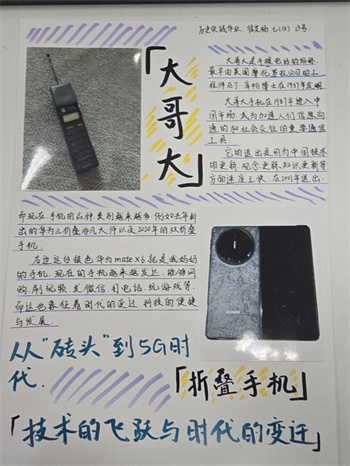 历史实践作业
「大哥大」
大哥大是手提电话的俗称
最早由美国摩托罗拉公司的工
程师马丁·库帕博士在1973年发明
大哥大手机在1987年进入中
国市场,大为加速人们信息沟
通的和社会交往的重要通信
工具
它的退出是因为中国技术
的更新,观念更新,知识更新等
方面速度之快,在2001年退出.
而现在手机的品种类别越来越多,例如去年新
出的华为三折叠非凡大师以及2020年的双折叠
手机.
右边这台银色华为mate X6就是我妈妈
的手机,现在的手机越来越发达,能够网
购,刷视频,发微信,打电话,玩游戏等.
而这也象征着时代的变迁,科技的便捷
与发展.
HUAWEI
从“砖头”到5G时
代.
「折叠手机」
「技术的飞跃与时代的变迁」